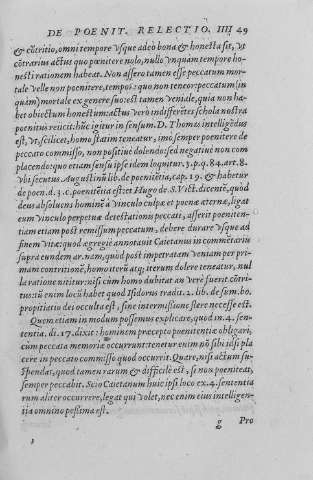 DE POENIT. RELECTIO. IIII 49
& cõtritio, omni tempore vsque adeò bona & honesta sit, vt
cõtrarius actus quo pœnitere nolo, nullo vnquam tempore ho-
nesti rationem habeat. Non assero tamen esse peccatum mor-
tale velle non pœnitere, tempos: quo non teneor: peccatum (in
quam) mortale ex genere suo: est tamen veniale, quia non ha-
bet obiectum honestum: actus verò indifferẽtes schola nostra
pœnitus reiicit: hũc igitur in sensum. D. Thomas intelligẽdus
est, vt scilicet, homo statim teneatur, imo semper pœnitere de
peccato commisso, non positiuè dolendo: sed negatiuè non com
placendo: quo etiam sensu ipse idem loquitur. 3. p. q. 84. art. 8.
vbi secutus Augustinũ lib. de pœnitẽtia, cap. 19. & habetur
de pœn. d. 3. c. pœnitẽtia est: et Hugo de S. Vict. dicentẽ, quòd
deus absoluens hominẽ à vinculo culpæ et pœnæ æternæ, ligat
eum vinculo perpetuæ detestationis peccati, asserit pœniten-
tiam etiam post remissum peccatum, debere durare vsque ad
finem vitæ: quod egregiè annotauit Caietanus in commẽtariis
supra eundem ar. nam, quòd post impetratam veniam per pri-
mam contritionẽ, homo iterũ atq; iterum dolere teneatur, nul
la ratione nititur: nisi cùm homo dubitat an verè fuerit cõtri-
tus: tũ enim locũ habet quod Isidorus tradit. 2. lib. de sum. bo.
propitiatio dei occulta est, sine intermissione flere necesse est.
Quem etiam in modum possemus explicare, quod in. 4. sen-
tentia, di. 17. dixit: hominem præcepto pœnitentiæ obligari,
cùm peccata memoriæ occurrunt: tenetur enim nõ sibi ipsi pla
cere in peccato commisso quod occurrit. Quare, nisi actum su-
spendat, quod tamen rarum & difficilè est, si non pœniteat,
semper peccabit. Scio Caietanum huic ipsi loco ex. 4. sententia
rum aliter occurrere, legat qui volet, nec enim eius intelligen-
tia omnino pessima est.
g Pro